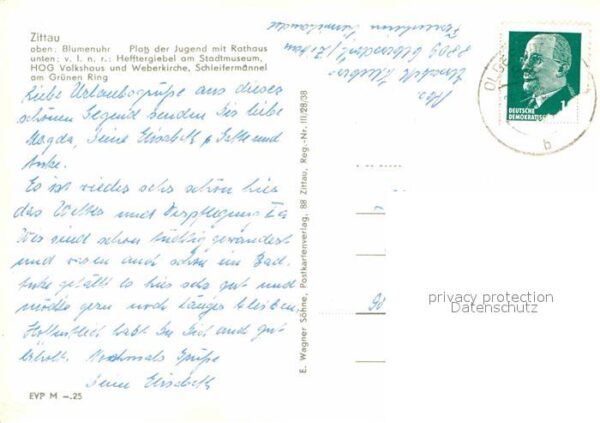 Zittau
oben: Blumenuhr Platz der Jugend mit Rathaus
unten: v. l. n. r.: Hefftergiebel am Stadtmuseum,
HOG Volkshaus und Weberkirche, Schleifermännel
am Grünen Ring
Liebe Urlaubsgrüße aus dieser
schönen Gegend senden Dir liebe
Magda, Deine Elisabeth, Gatte und
Anke.
Es ist wieder sehr schön hier
das Wetter und Verpflegung Ia
Wir sind schon tüchtig gewandert
und waren auch schon im Bad.
Anke gefällt es hier sehr gut und
möchte gern noch länger bleiben.
Hoffentlich habt Ihr Dich auch gut
erholt. Nochmals Grüße
Deine Elisabeth
EVP M –.25
E. Wagner Söhne, Postkartenverlag, 88 Zittau, Reg.-Nr. III/28/38
Abs.
Elisabeth
8809 Olbersdorf/Zittau
Ferienheim
DEUTSCHE
DEMOKRATISC
OLBE
b
privacy protection
Datenschutz